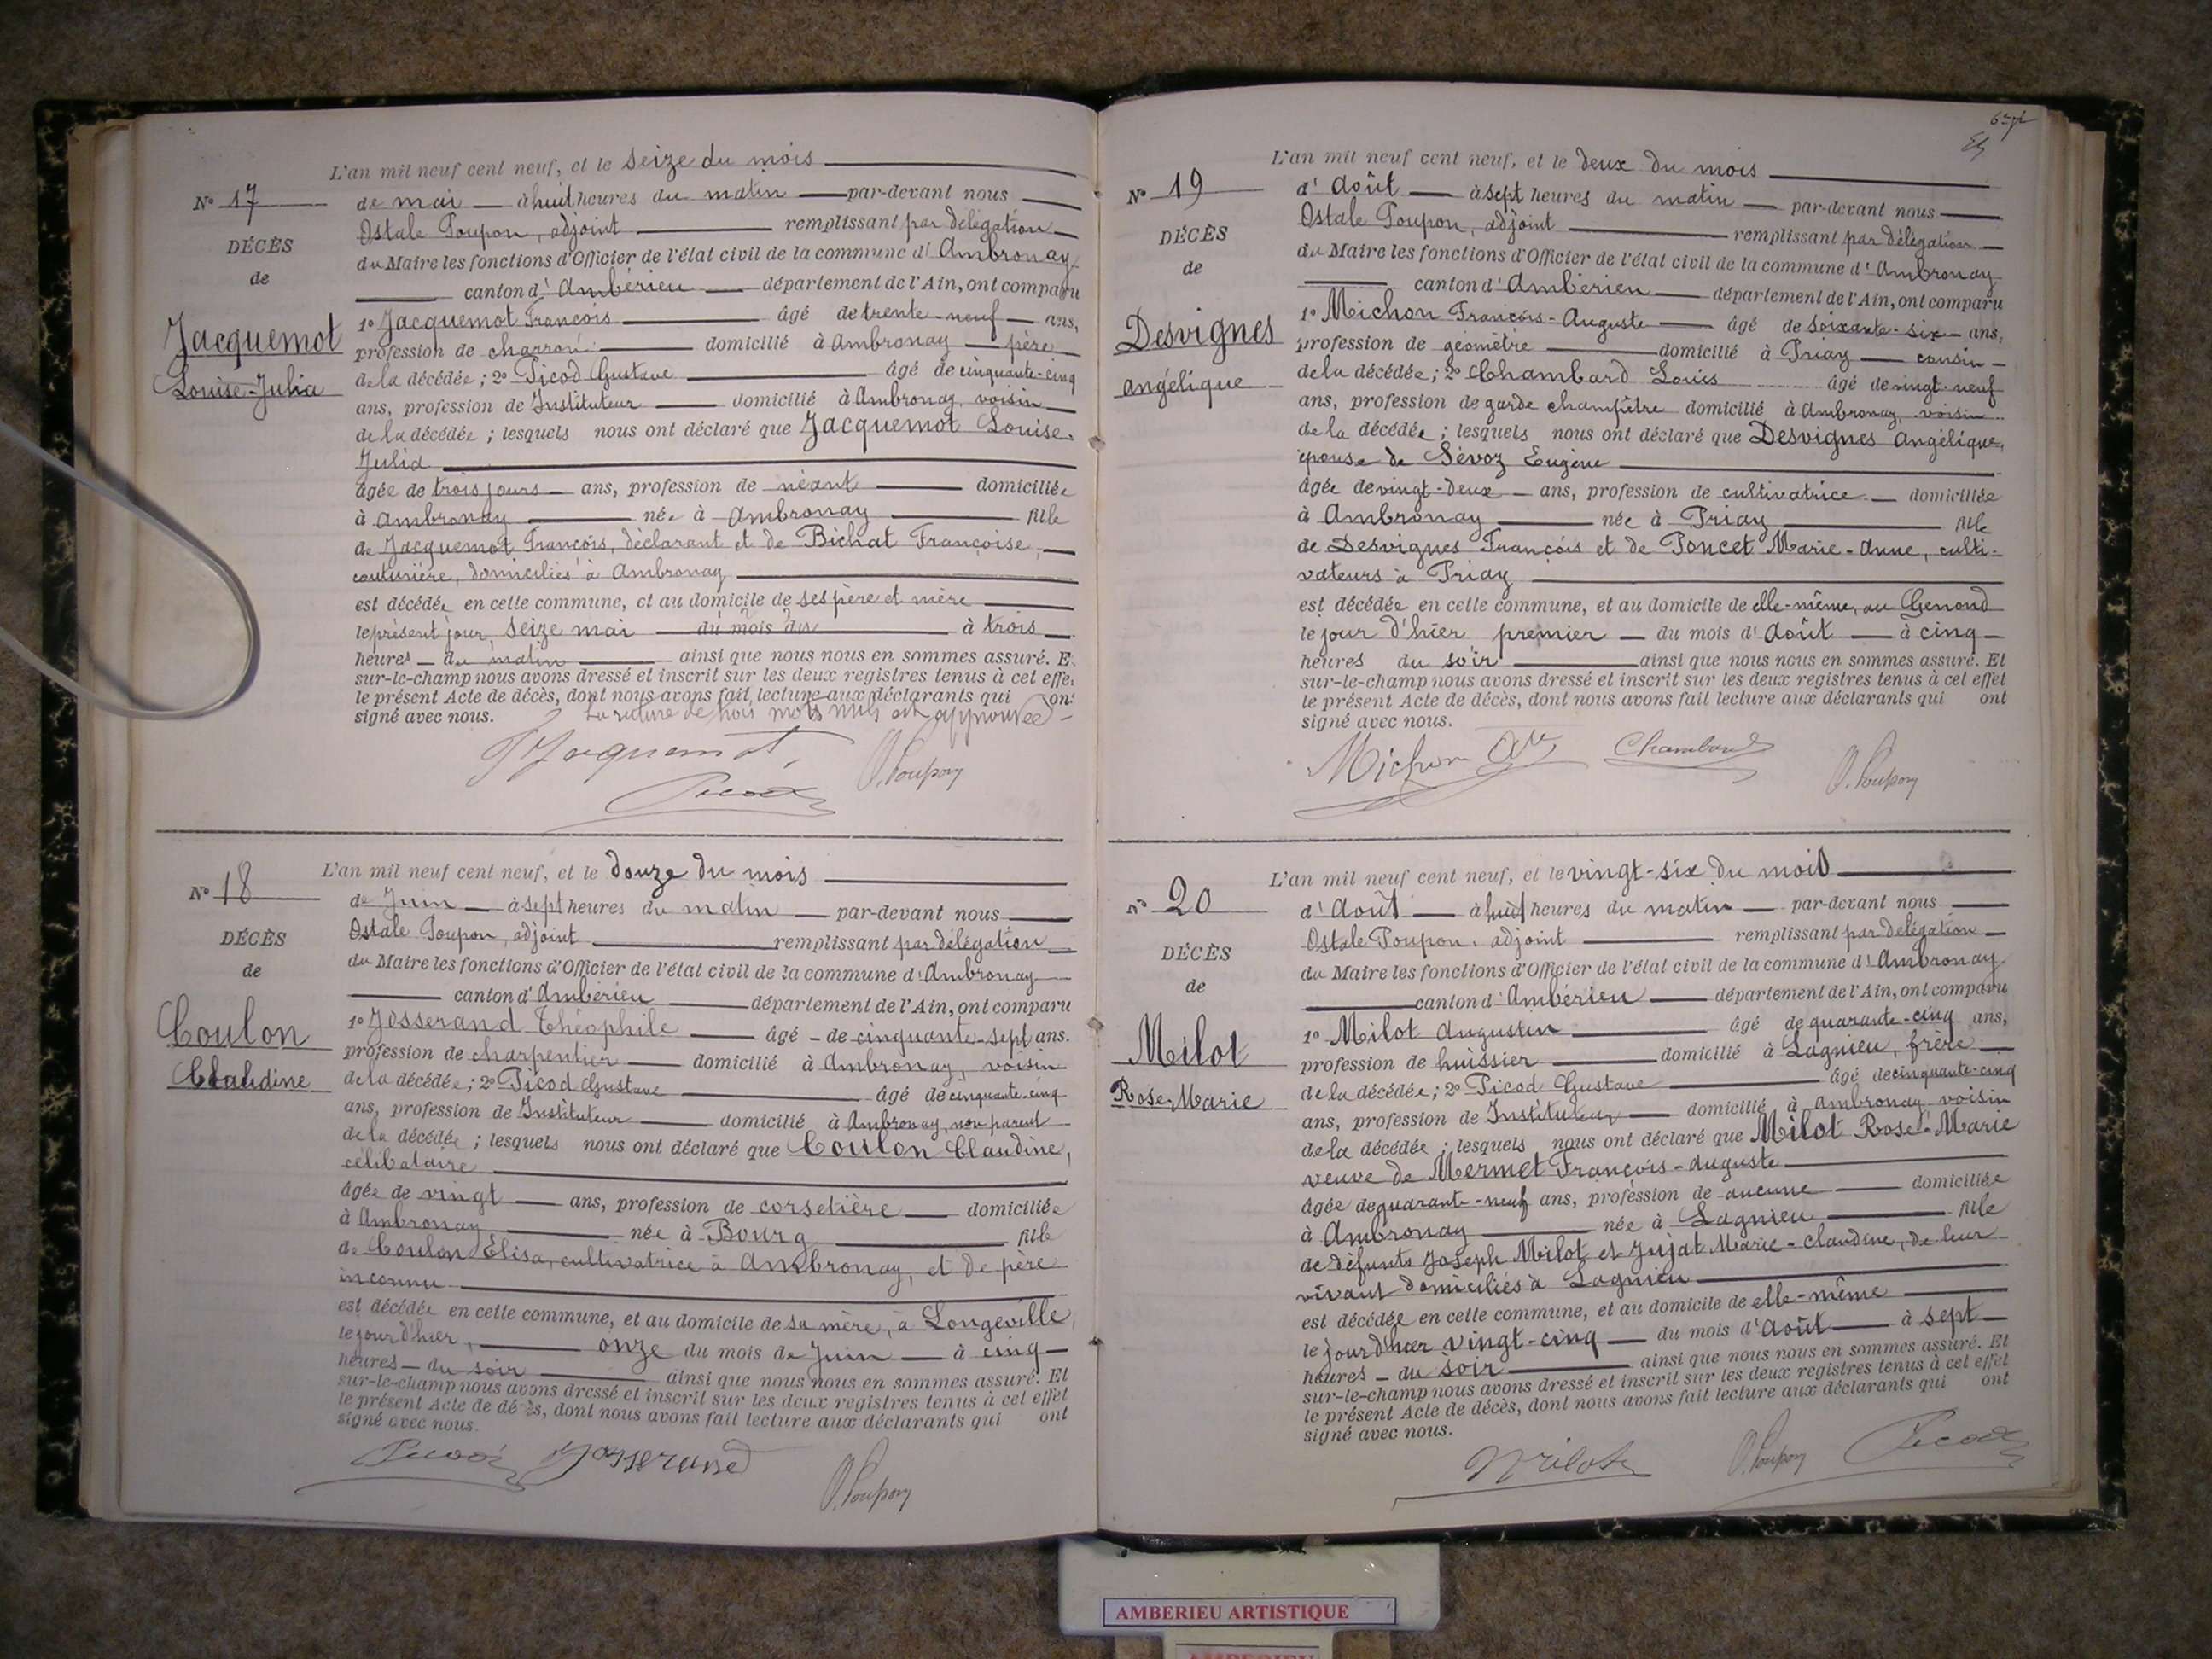 L'an mil neuf cent neuf, et le seize du mois
N° 17
de mai à huit heures du matin par-devant nous
Ostale Poupon, adjoint remplissant par délégation
DÉCÈS
du Maire les fonctions d'Officier de l'état civil de la commune d'Ambronay
de
canton d'Ambérieu département de l'Ain, ont comparu
Jacquemot
1° Jacquemot François âgé de trente-neuf ans,
profession de charron domicilié à Ambronay père
Louise-Julia
de la décédée ; 2° Picod Gustave âgé de cinquante-cinq
ans, profession de Instituteur domicilié à Ambronay, voisin
de la décédée ; lesquels nous ont déclaré que Jacquemot Louise-
Julia
âgée de trois jours ans, profession de néant domiciliée
à Ambronay née à Ambronay fille
de Jacquemot François, déclarant et de Bichat Françoise,
couturière, domiciliés à Ambronay
est décédée en cette commune, et au domicile de ses père et mère
le présent jour, seize mai du mois de à trois
heures du matin ainsi que nous nous en sommes assuré. E
sur-le-champ nous avons dressé et inscrit sur les deux registres tenus à cet effe
le présent Acte de décès, dont nous avons fait lecture aux déclarants qui on
signé avec nous. La rature de trois mots nuls est approuvée
Jacquemot
Picod
O. Poupon
L'an mil neuf cent neuf, et le douze du mois
N° 18
de Juin à sept heures du matin par-devant nous
Ostale Poupon, adjoint remplissant par délégation
DÉCÈS
du Maire les fonctions d'Officier de l'état civil de la commune d'Ambronay
de
canton d'Ambérieu département de l'Ain, ont comparu
Coulon
1° Josserand Théophile âgé de cinquante-sept ans.
profession de charpentier domicilié à Ambronay, voisin
Claudine
de la décédée ; 2° Picod Gustave âgé de cinquante-cinq
ans, profession de Instituteur domicilié à Ambronay, non parent
de la décédée ; lesquels nous ont déclaré que Coulon Claudine,
célibataire
âgée de vingt ans, profession de corsetière domiciliée
à Ambronay née à Bourg fille
de Coulon Élisa, cultivatrice à Ambronay, et de père
inconnu
est décédée en cette commune, et au domicile de sa mère, à Longeville,
le jour d'hier, onze du mois de Juin à cinq
heures du soir ainsi que nous nous en sommes assuré. Et
sur-le-champ nous avons dressé et inscrit sur les deux registres tenus à cet effet
le présent Acte de décès, dont nous avons fait lecture aux déclarants qui ont
signé avec nous.
Picod Josserand
O. Poupon
L'an mil neuf cent neuf, et le deux du mois
N° 19
d'Août à sept heures du matin par-devant nous
Ostale Poupon, adjoint remplissant par délégation
DÉCÈS
du Maire les fonctions d'Officier de l'état civil de la commune d'Ambronay
de
canton d'Ambérieu département de l'Ain, ont comparu
Desvignes
1° Michon François-Auguste âgé de soixante-six ans,
profession de géomètre domicilié à Priay cousin
Angélique
de la décédée ; 2° Chambard Louis âgé de vingt-neuf
ans, profession de garde champêtre domicilié à Ambronay voisin
de la décédée ; lesquels nous ont déclaré que Desvignes Angélique,
épouse de Sévoz Eugène
âgée de vingt-deux ans, profession de cultivatrice domiciliée
à Ambronay née à Priay fille
de Desvignes François et de Poncet Marie-Anne, culti-
vateurs à Priay
est décédée en cette commune, et au domicile de elle-même, au Genoud
le jour d'hier premier du mois d'Août à cinq
heures du soir ainsi que nous nous en sommes assuré. Et
sur-le-champ nous avons dressé et inscrit sur les deux registres tenus à cet effet
le présent Acte de décès, dont nous avons fait lecture aux déclarants qui ont
signé avec nous.
Michon Chambard
O. Poupon
L'an mil neuf cent neuf, et le vingt-six du mois
N° 20
d'Août à huit heures du matin par-devant nous
Ostale Poupon, adjoint remplissant par délégation
DÉCÈS
du Maire les fonctions d'Officier de l'état civil de la commune d'Ambronay
de
canton d'Ambérieu département de l'Ain, ont comparu
Milot
1° Milot Augustin âgé de quarante-cinq ans,
profession de huissier domicilié à Lagnieu, frère
Rose-Marie
de la décédée ; 2° Picod Gustave âgé de cinquante-cinq
ans, profession de Instituteur domicilié à Ambronay voisin
de la décédée ; lesquels nous ont déclaré que Milot Rose-Marie
veuve de Mermet François-Auguste
âgée de quarante-neuf ans, profession de aucune domiciliée
à Ambronay née à Lagnieu fille
de défunts Joseph Milot et Jujat Marie-Claudine, de leur
vivant domiciliés à Lagnieu
est décédée en cette commune, et au domicile de elle-même
le jour d'hier vingt-cinq du mois d'Août à sept
heures du soir ainsi que nous nous en sommes assuré. Et
sur-le-champ nous avons dressé et inscrit sur les deux registres tenus à cet effet
le présent Acte de décès, dont nous avons fait lecture aux déclarants qui ont
signé avec nous.
Milot O. Poupon Picod
AMBERIEU ARTISTIQUE